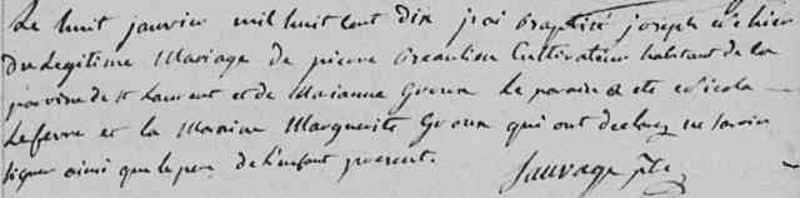 Le huit janvier mil huit cent dix j'ai baptisé joseph né hier
du legitime Mariage de pierre Beaulieu Cultivateur habitant de la
paroisse de st Laurent et de Marianne Groux Le parain a eté Nicola
Lefevre et la Maraine Marguerite Groux qui ont declaré ne savoir
signer ainsi que le pere de l'enfant present.
Sauvage ptr